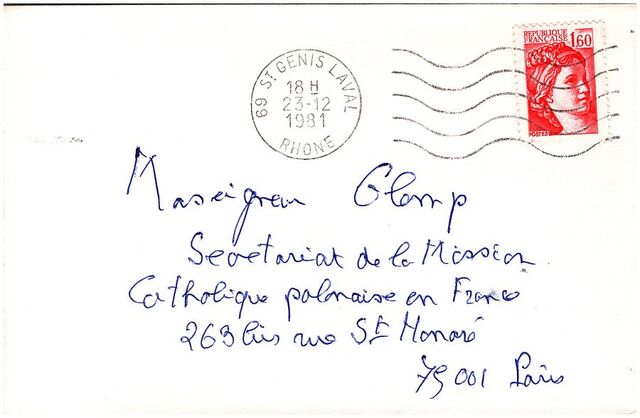 REPUBLIQUE
FRANÇAISE 1,60
POSTES
69 ST GENIS LAVAL
18 H
23-12
1981
RHONE
Monseigneur Glemp
Secrétariat de la Mission
Catholique polonaise en France
263 bis rue St Honoré
75001 Paris